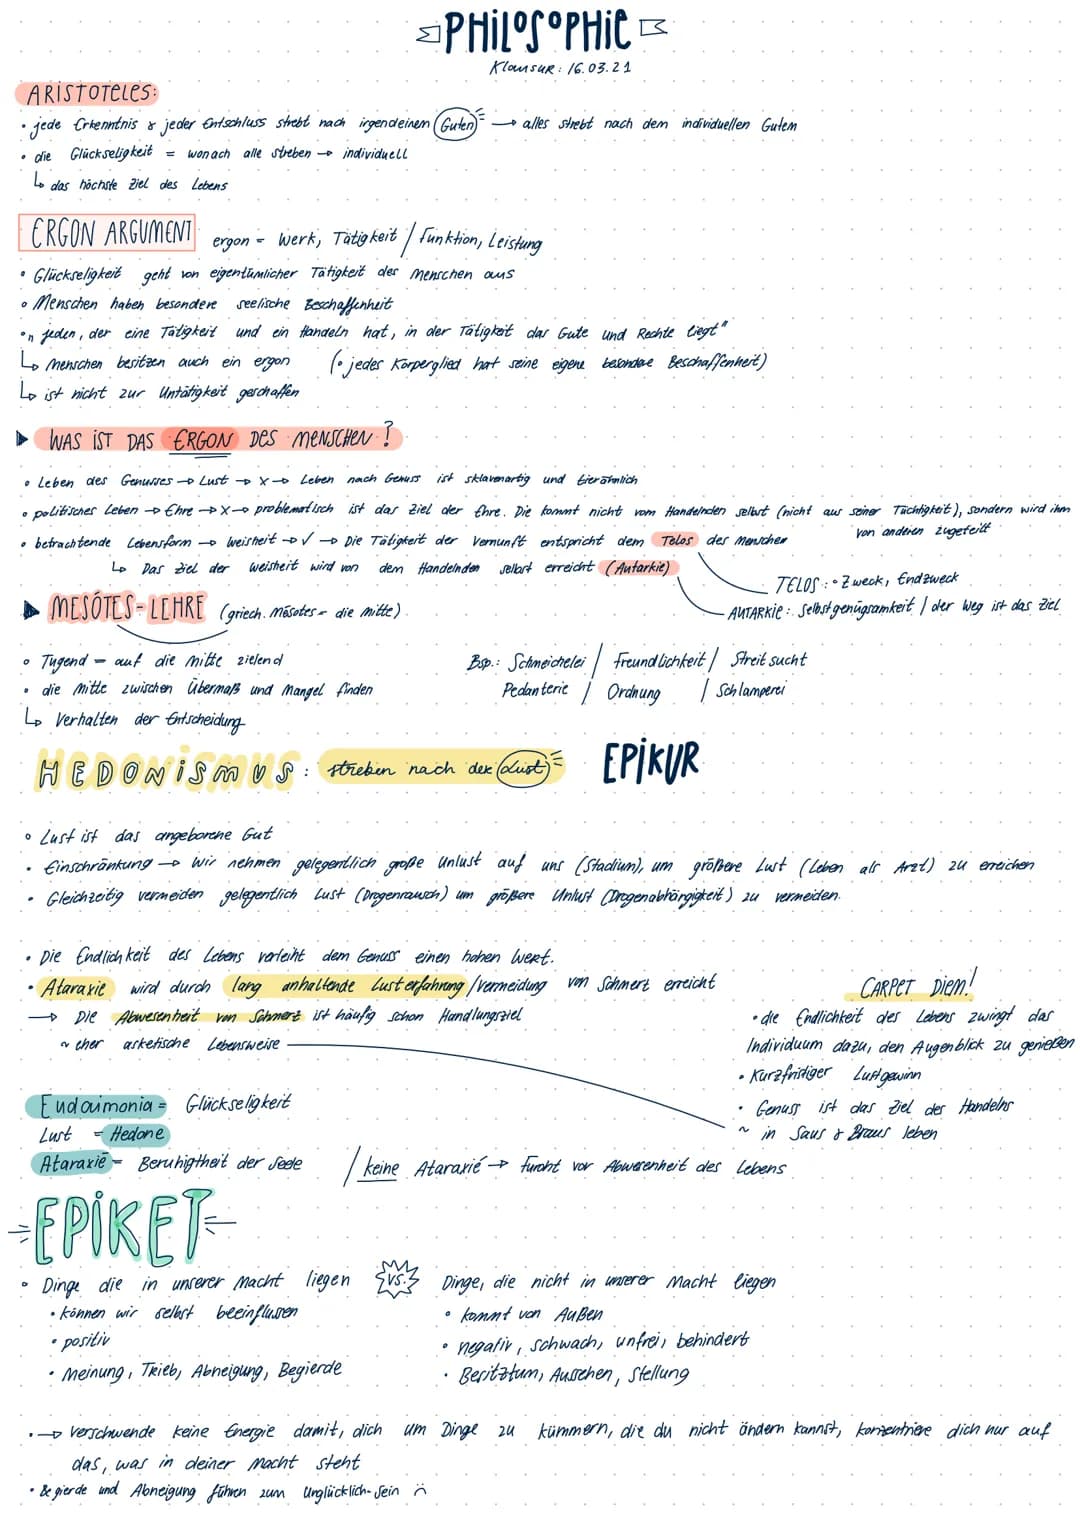 PHILOSOPHIE
Klausur: 16.03.21
ARISTOTELES:
• jede Erkenntnis & jeder Entschluss strebt nach irgendeinem Guten → alles strebt nach dem individuellen Gutem
• die Glückseligkeit = wonach alle streben → individuell
↳ das höchste Ziel des Lebens
ERGON ARGUMENT ergon = Werk, Tätigkeit / Funktion, Leistung
• Glückseligkeit geht von eigentümlicher Tätigkeit des Menschen aus
• Menschen haben besondere seelische Beschaffenheit
• „jeden, der eine Tätigkeit und ein Handeln hat, in der Tätigkeit das Gute und Rechte liegt"
↳ Menschen besitzen auch ein ergon (• jedes Körperglied hat seine eigene besondere Beschaffenheit)
↳ ist nicht zur Untätigkeit geschaffen
▶ WAS IST DAS ERGON DES MENSCHEN?
• Leben des Genusses → Lust → X → Leben nach Genuss ist sklavenartig und tierähnlich
• politisches Leben → Ehre → X → problematisch ist das Ziel der Ehre. Die kommt nicht vom Handelnden selbst (nicht aus seiner Tüchtigkeit), sondern wird ihm
von anderen zugeteilt
• betrachtende Lebensform → Weisheit → ✓ → Die Tätigkeit der Vernunft entspricht dem Telos des Menschen
↳ Das Ziel der Weisheit wird von dem Handelnden selbst erreicht (Autarkie)
TELOS: • Zweck, Endzweck
AUTARKIE: Selbstgenügsamkeit / der Weg ist das Ziel
▶ MESÓTES-LEHRE (griech. Mésotes = die Mitte)
• Tugend = auf die Mitte zielend
• die Mitte zwischen Übermaß und Mangel finden
↳ Verhalten der Entscheidung
Bsp.: Schmeichelei / Freundlichkeit / Streitsucht
Pedanterie / Ordnung / Schlamperei
HEDONISMUS: streben nach der Lust EPIKUR
• Lust ist das angeborene Gut
• Einschränkung → Wir nehmen gelegentlich große Unlust auf uns (Stadium), um größere Lust (Leben als Arzt) zu erreichen
• Gleichzeitig vermeiden gelegentlich Lust (Drogenrausch) um größere Unlust (Drogenabhängigkeit) zu vermeiden.
• Die Endlichkeit des Lebens verleiht dem Genuss einen hohen Wert.
• Ataraxie wird durch lang anhaltende Lusterfahrung / Vermeidung von Schmerz erreicht
→ Die Abwesenheit von Schmerz ist häufig schon Handlungsziel
~ eher asketische Lebensweise
CARPET DIEM!
• die Endlichkeit des Lebens zwingt das
Individuum dazu, den Augenblick zu genießen
• Kurzfristiger Lustgewinn
• Genuss ist das Ziel des Handelns
~ in Saus & Braus leben
Eudaimonia = Glückseligkeit
Lust = Hedone
Ataraxie = Beruhigtheit der Seele / keine Ataraxié → Furcht vor Abwesenheit des Lebens
EPIKET
• Dinge die in unserer Macht liegen VS. Dinge, die nicht in unserer Macht liegen
• können wir selbst beeinflussen
• positiv
• Meinung, Trieb, Abneigung, Begierde
• kommt von Außen
• negativ, schwach, unfrei, behindert
• Besitztum, Aussehen, Stellung
• → Verschwende keine Energie damit, dich um Dinge zu kümmern, die du nicht ändern kannst, konzentriere dich nur auf
das, was in deiner Macht steht
• Begierde und Abneigung führen zum Unglücklich-Sein